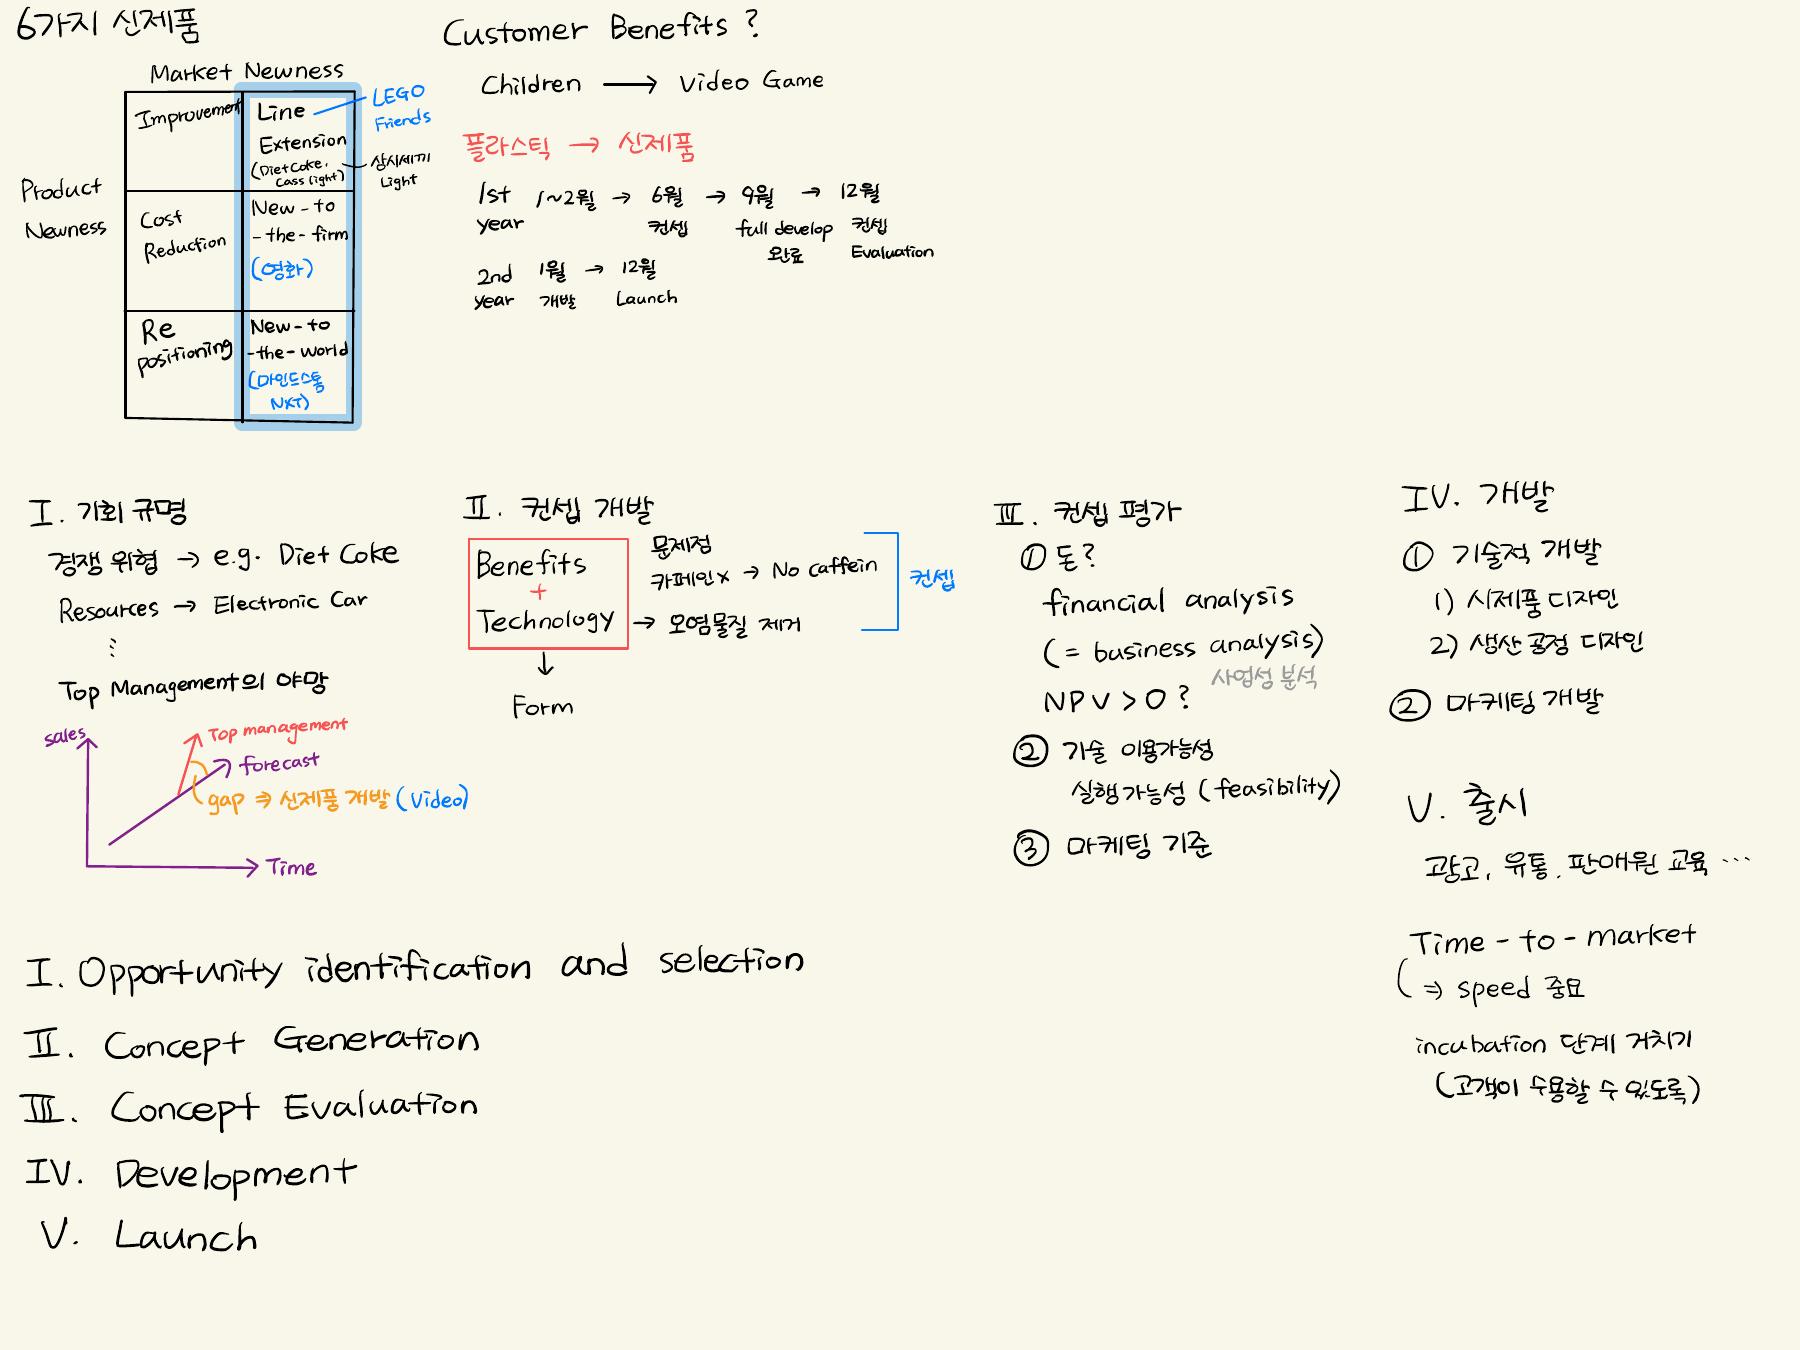 6가지 신제품
Market Newness
Product
Newness
Improvement
Line
Extension
(Diet Coke,
Cass light)
LEGO
Friends
삼시세끼
Light
Cost
Reduction
New-to
-the-firm
(영화)
Re
positioning
New-to
-the-world
(마인드스톰
NXT)
Customer Benefits?
Children → Video Game
플라스틱 → 신제품
1st 1~2월 → 6월 → 9월 → 12월
year 컨셉 full develop 컨셉
완료 Evaluation
2nd 1월 → 12월
year 개발 Launch
I. 기회 규명
경쟁 위협 → e.g. Diet Coke
Resources → Electronic Car
⋮
Top Management의 야망
sales
Top management
forecast
gap ⇒ 신제품 개발 (Video)
Time
II. 컨셉 개발
Benefits
+
Technology
문제점
카페인x → No caffein
→ 오염물질 제거
컨셉
↓
Form
III. 컨셉 평가
① 돈?
financial analysis
(= business analysis)
사업성 분석
NPV > 0?
② 기술 이용가능성
실행가능성 (feasibility)
③ 마케팅 기준
IV. 개발
① 기술적 개발
1) 시제품 디자인
2) 생산 공정 디자인
② 마케팅 개발
V. 출시
광고, 유통, 판매원 교육 ...
Time-to-market
( ⇒ speed 중요
incubation 단계 거치기
(고객이 수용할 수 있도록)
I. Opportunity identification and selection
II. Concept Generation
III. Concept Evaluation
IV. Development
V. Launch